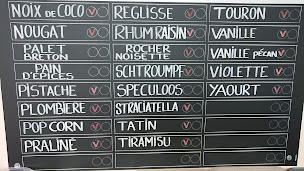 NOIX DE COCO
NOUGAT
PALET
BRETON
PAIN
D'ÉPICES
PISTACHE
PLOMBIERE
POP CORN
PRALINÉ
REGLISSE
RHUM RAISIN
ROCHER
NOISETTE
SCHTROUMPF
SPECULOOS
STRACIATELLA
TATIN
TIRAMISU
TOURON
VANILLE
VANILLE PÉCAN
VIOLETTE
YAOURT